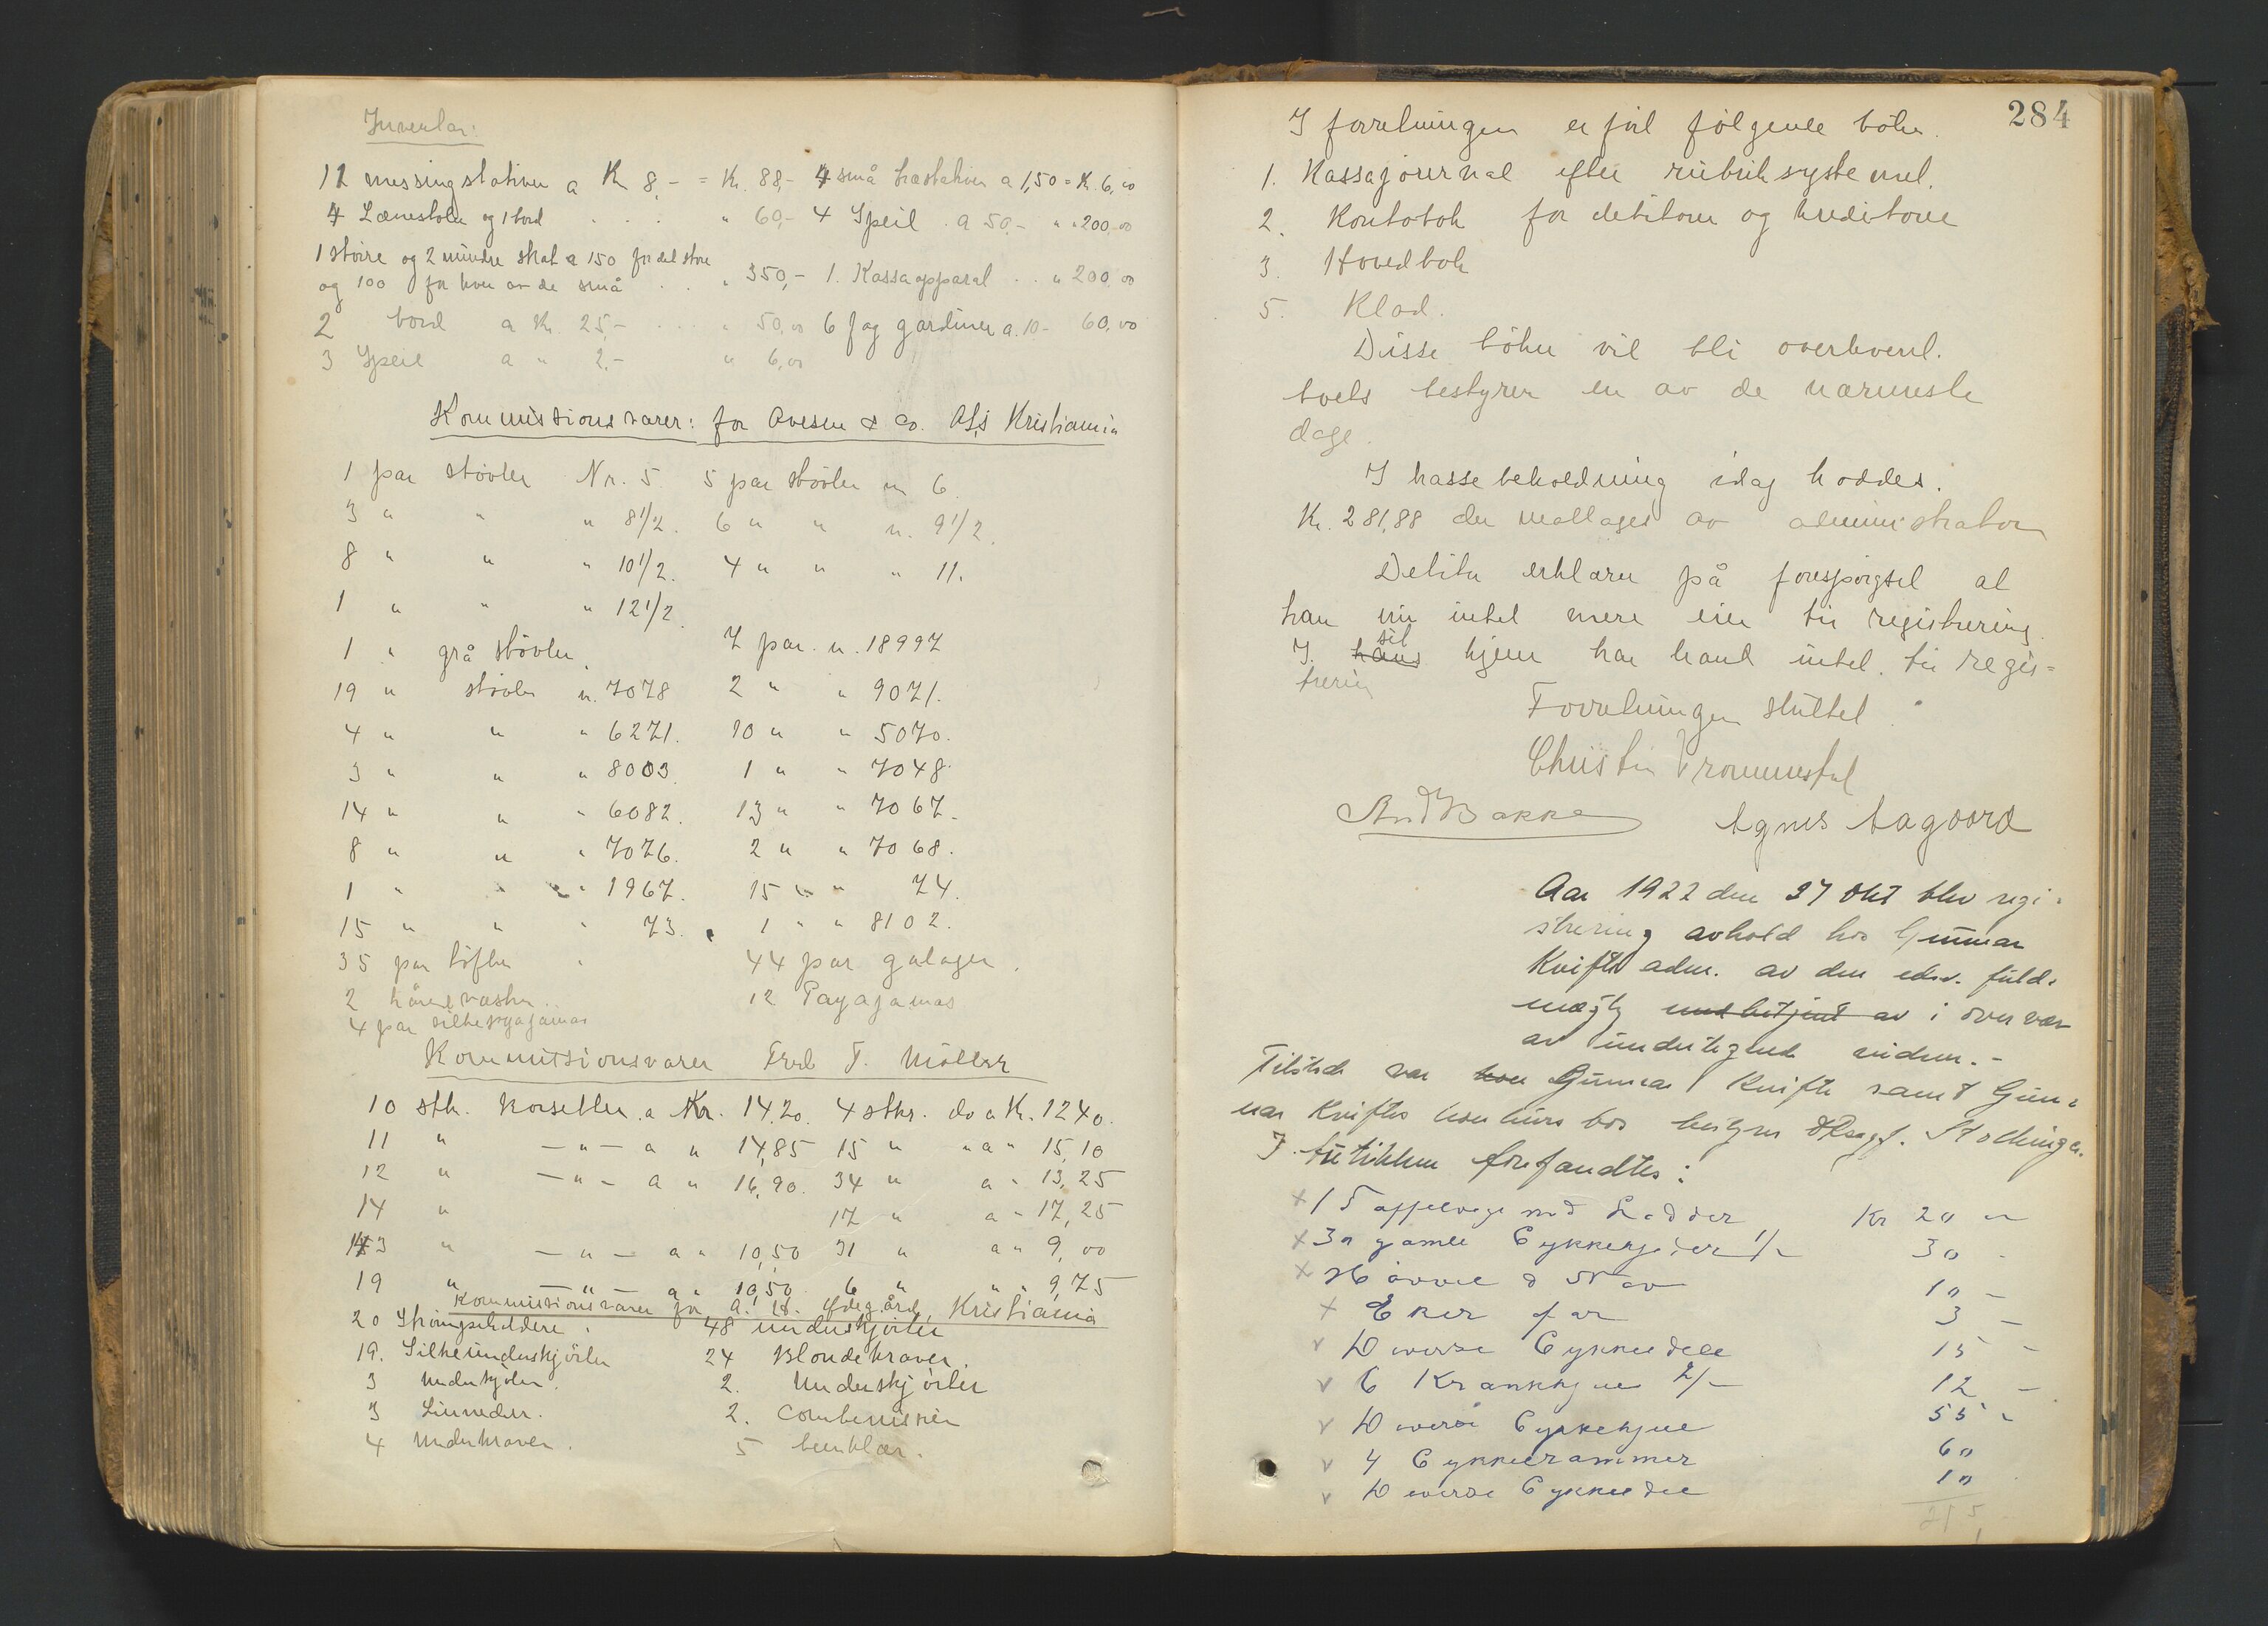 Inventar:
11 messingstativer a Kr 8,- = Kr. 88,- 4 små træstativer a 1,50 = Kr. 6,00
4 Lænestoler og 1 bord . . . " 60,- 4 Speil . a 50,- " " 200,00
1 større og 2 mindre skab a 150 for det store
og 100 for hver av de små . . " 350,- 1. Kassaapparat . . " 200,00
2 bord a Kr. 25,- . . . " 50,00 6 fag gardiner a. 10- 60,00
3 Speil a " 2,- " 6,00
Kommissionsvarer: for Ovesen & Co. A/S Kristiania
1 par støvler Nr. 5. 5 par støvler n 6.
3 " " " 8 1/2. 6 " " n. 9 1/2.
8 " " " 10 1/2. 4 " " " 11.
1 " " " 12 1/2.
1 " grå støvler. 7 par. n. 18997
19 " støvler n. 7078 2 " " 9071.
4 " " " 6271. 10 " " 5070.
3 " " " 8003. 1 " " 7048
14 " " " 6082. 13 " " 7067.
8 " " " 7076. 2 " " 7068.
1 " " " 1967. 15 " " 74.
15 " " " 73. 1 " " 8102.
35 par tøfler 44 par galager.
2 håndvasker .. 12 Payajamas
4 par silkepyajamas
Kommitsionsvarer Fred F. Møller
10 stk. korsetter a Kr. 14.20. 4 stkr. do a Kr. 1240.
11 " -"- a " 14,85 15 " " a " 15,10
12 " -"- a " 16,90. 34 " a " 13,25
14 " 17 " a " 17,25
13 " -"- a " 10,50 31 " a " 9,00
19 " -"- a " 10,50 6 " " " 9,75
Kommissionsvarer for A. H. Kristiania
20 Strømpeholdere. 48 underskjorter
19. Silkeunderskjørter 24 Blondekraver.
3 Underkjoler. 2. Underskjørter
3 2.
4 Underkraver. 5 benklær.
284
I forretningen er ført følgende bøker.
1. Kassajournal efter rubriksystemet.
2. Kontobok for debitorer og kreditorer
3. Hovedbok
5. Klad.
Disse bøker vil bli overlevert.
boets bestyrer en av de nærmeste
dage.
I kassebeholdning idag haddes.
Kr. 281,88 der mottages av administrator
Debitor erklærer på forespørgsel at
han nu intet mere eier til registrering.
I hans sit hjem har hand intet til regis=
trering
Forretningen sluttet.
Christin Trommestad
And Bakke Agnes Aagaard
Aar 1922 den 27 Okt blev regi-
strering avhold hos Gunnar
Kvifte adm. av den edsv. fuld-
mægtig i overvær
av undertegnede vidner.-
Tilstede var Gunnar Kvifte samt Gun-
nar Kviftes konkurs bos bestyrer
I butikken forefandtes:
x 1 Kr 20 -
x 30 gamle 1/- 30 -
x 10 -
x Eker 3 -
v Diverse Cykkeldele 15 -
v 6 Krankhjul 2/- 12 -
v Diverse Cykkelhjul 55 -
v 4 Cykkelrammer 60
v Diverse Cykkeldele 10
215